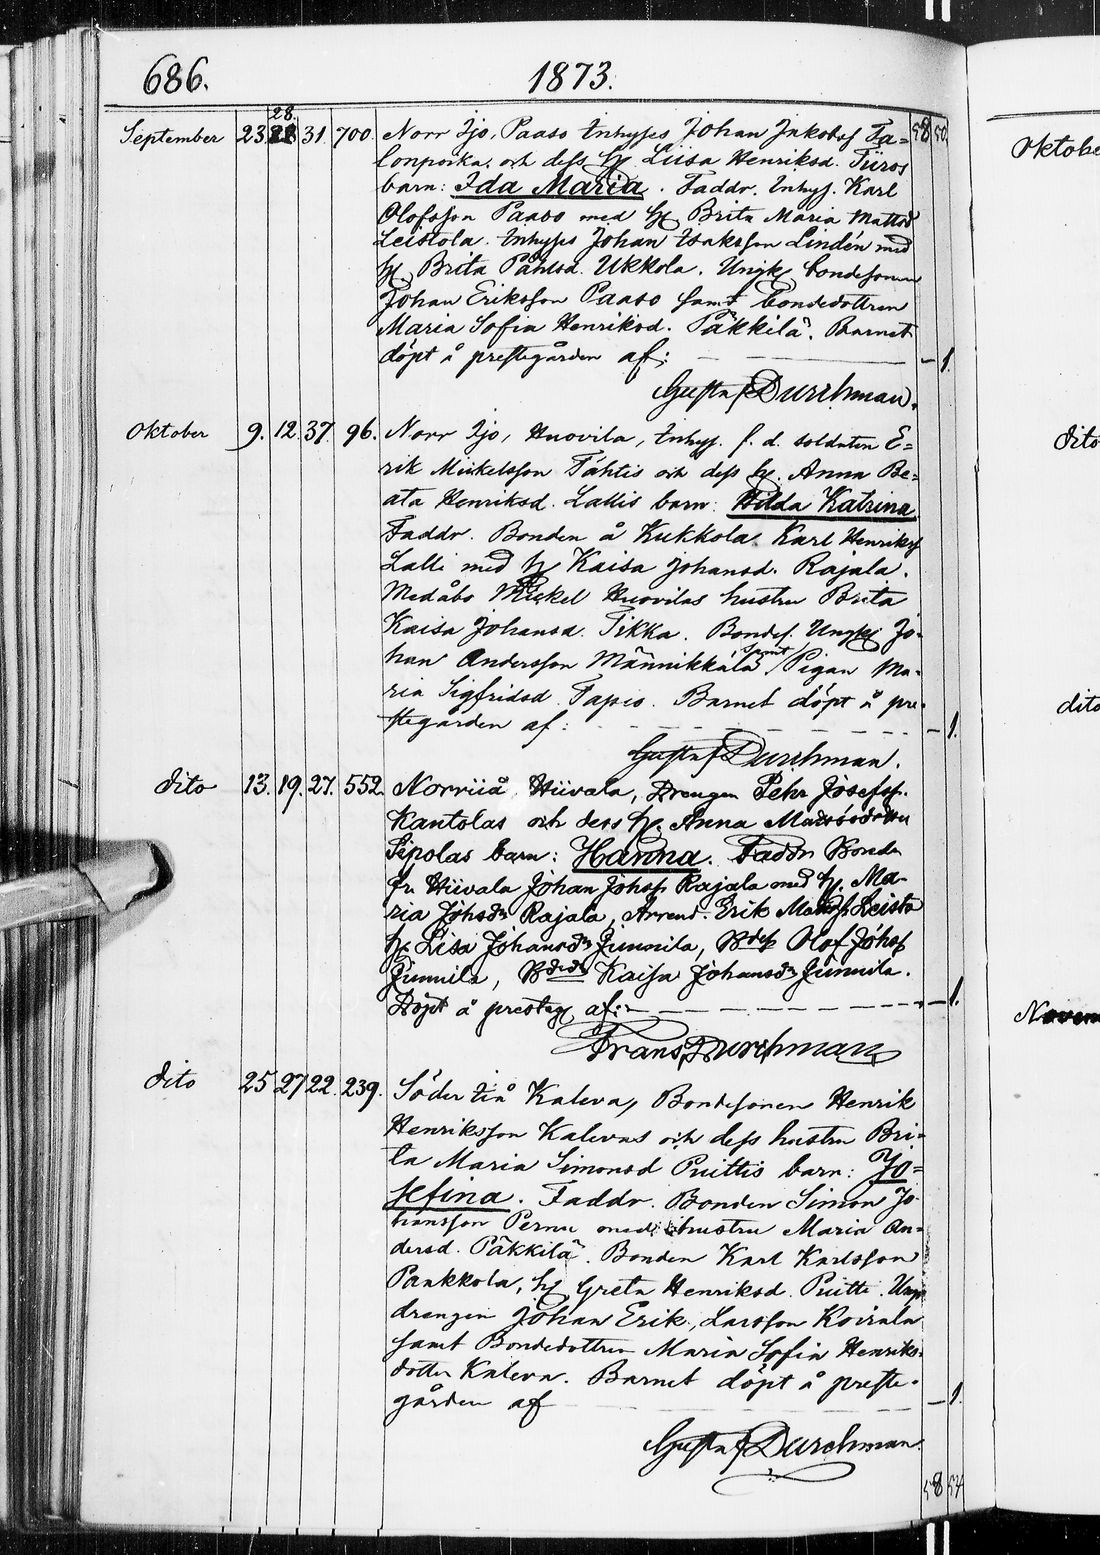 686. 1873.
28.
September 23. 28 31. 700. Norr Ijo, Paaso Inhyses Johan Jakobsf Ta= 58 50
lonpoika och dess hu Liisa Henriksd. Türos
barn: Ida Maria. Faddr. Inhys. Karl
Olofsson Paaso med hu Brita Maria Mattsd
Leistola. Inhyses Johan Isaksson Lindén med
hu Brita Påhlsd. Ukkola. Ungk bondesonen
Johan Eriksson Paaso samt bondedottren
Maria Sofia Henriksd. Päkkilä. Barnet
döpt å prestegården af: — 1.
Gustaf Durchman.
Oktober 9. 12. 37 96. Norr Ijo, Huovila, Inhys. f. d. soldaten E=
rik Mickelsson Tähtis och dess hu. Anna Be=
ata Henriksd. Lallis barn: Hilda Katrina
Faddr. Bonden å Kukkola Karl Henriksf
Lalli med hu Kaisa Johansd. Rajala.
Medåbo Mickel Huovilas hustru Brita
Kaisa Johansd. Tikka. Bondes. Ungk Jo-
han Andersson Männikkälä samt Pigan Ma-
ria Sigfridsd Tapio. Barnet döpt å pre-
stegården af: — 1.
Gustaf Durchman.
dito 13. 19. 27. 552. Norriiå Hiivala, Drengen Pehr Josefsf.
Kantolas och dess hu. Anna Matsdotter
Sipolas barn: Hanna. Faddr Bonden
fr. Hiivala Johan Johsf Rajala med hu. Ma-
ria Johsdr Rajala, Arrend. Erik Matsf. Leisto
hu Lisa Johansdr Jinnila, Bdes Olof Johsf
Jinnila, Bdedr Kaisa Johansdr Jinnila.
Döpt å presteg af: — 1.
Frans Durchman
dito 25 27 22. 239. Söder Iiå Kaleva, Bondesonen Henrik
Henriksson Kalevas och dess hustru Bri-
ta Maria Simonsd Puittis barn: Jo=
sefina. Faddr. Bonden Simon Jo
hansson Pernu med hustru Maria An-
dersd. Päkkilä. Bonden Karl Karlsson
Paakkola, hu Greta Henriksd. Puitti. Ung
drengen Johan Erik Larsson Koirala
samt Bondedottren Maria Sofia Henriks-
dotter Kaleva. Barnet döpt å preste-
gården af — 1.
Gustaf Durchman
58 54
Oktobe
dito
dito
Novem